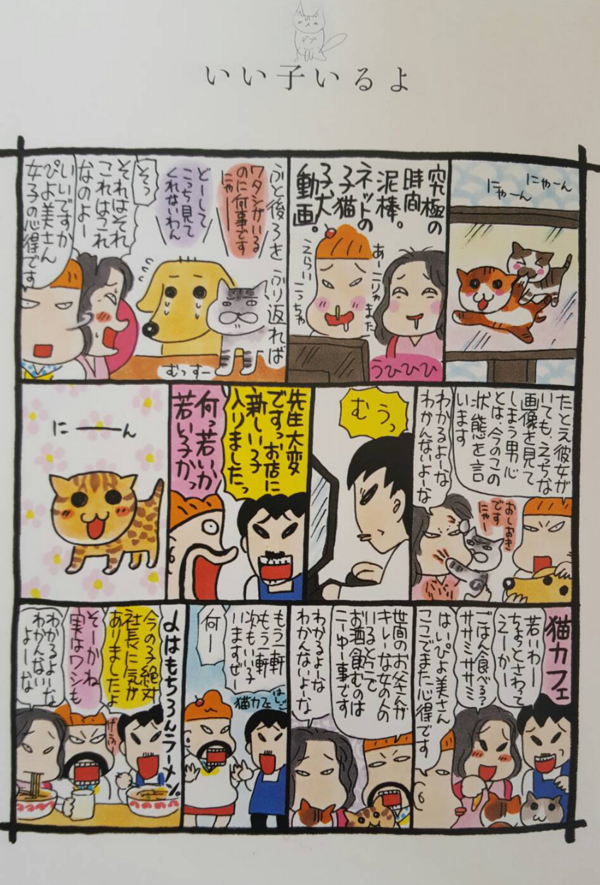 いい子いるよ
にゃーん
にゃーん
究極の
時間
泥棒。
ネットの
子猫
子犬
動画。
あーこりゃまた
えらいこっちゃ
うひひひ
ふと後ろを ふり返れば
ワタシがいる
のに何事です
にゃー
どーして
こっち見て
くれないわん
むっすー
そうっ
それはそれ
これはこれ
なのよー
いいですか
ぴよ美さん
女子の心得です
たとえ彼女が
いても、えっちな
画像を見て
しまう男心
とは、今のこの
状態を言
います
わかるよーな
わかんないよーな
おしおき
です
にゃー
むうっ
先生大変
ですっお店に
新しい子
入りましたっ
何っ若いか
若い子かっ
にーーーん
猫カフェ
若いわー
ちょっとさわって
えーかー
ごはん食べる?
ササミササミ
はいぴよ美さん
ここでまた心得です
世間のお父さんが
キレーな女の人の
いるところで
お酒飲むのは
こーゆー事です
わかるよーな
わかんないよーな
はしご
猫カフェ
もう一軒
もう一軒
次もいい子
いますぜー
何ー
〆はもちろんラーメン
今の子絶対
社長に気が
ありましたよ
そーかね
実はワシも
げふー
わかるよーな
わかんない
よーな